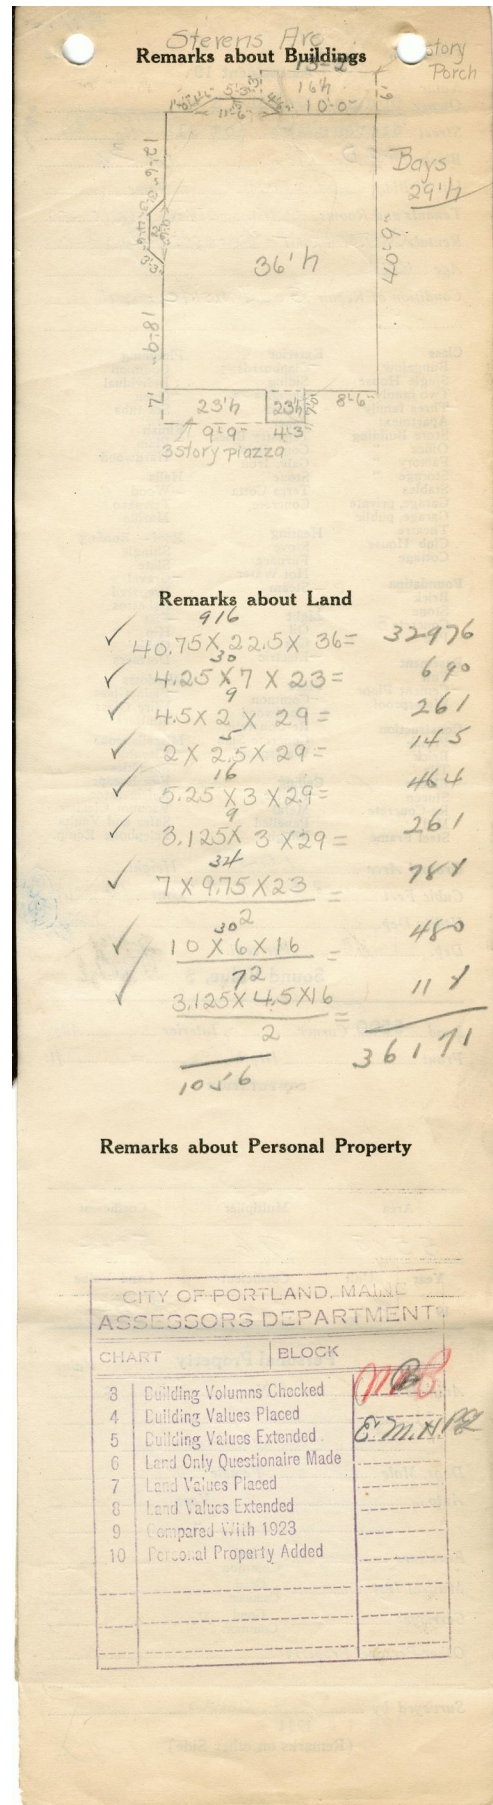 Stevens Ave
Remarks about Buildings
story
Porch
13'-2"
16'h
10'-0"
6'
5'-3"
11'-6"
12'-6"
Bays
29'h
36'h
40'-9"
18'-9"
7'
23'h
23'h
7'-0"
8'-6"
9'-9"
4'-3"
3 story piazza
Remarks about Land
916
✓ 40.75 X 22.5 X 36 = 32976
30
✓ 4.25 X 7 X 23 = 690
9
✓ 4.5 X 2 X 29 = 261
5
✓ 2 X 2.5 X 29 = 145
16
✓ 5.25 X 3 X 29 = 464
9
✓ 3.125 X 3 X 29 = 261
34
✓ 7 X 9.75 X 23 = 784
2
30
✓ 10 X 6 X 16 = 480
2
7
✓ 3.125 X 4.5 X 16 = 112
2
1056
36171
Remarks about Personal Property
CITY OF PORTLAND, MAINE
ASSESSORS DEPARTMENT
CHART BLOCK
3 Building Volumns Checked
4 Building Values Placed
5 Building Values Extended
6 Land Only Questionaire Made
7 Land Values Placed
8 Land Values Extended
9 Compared With 1923
10 Personal Property Added